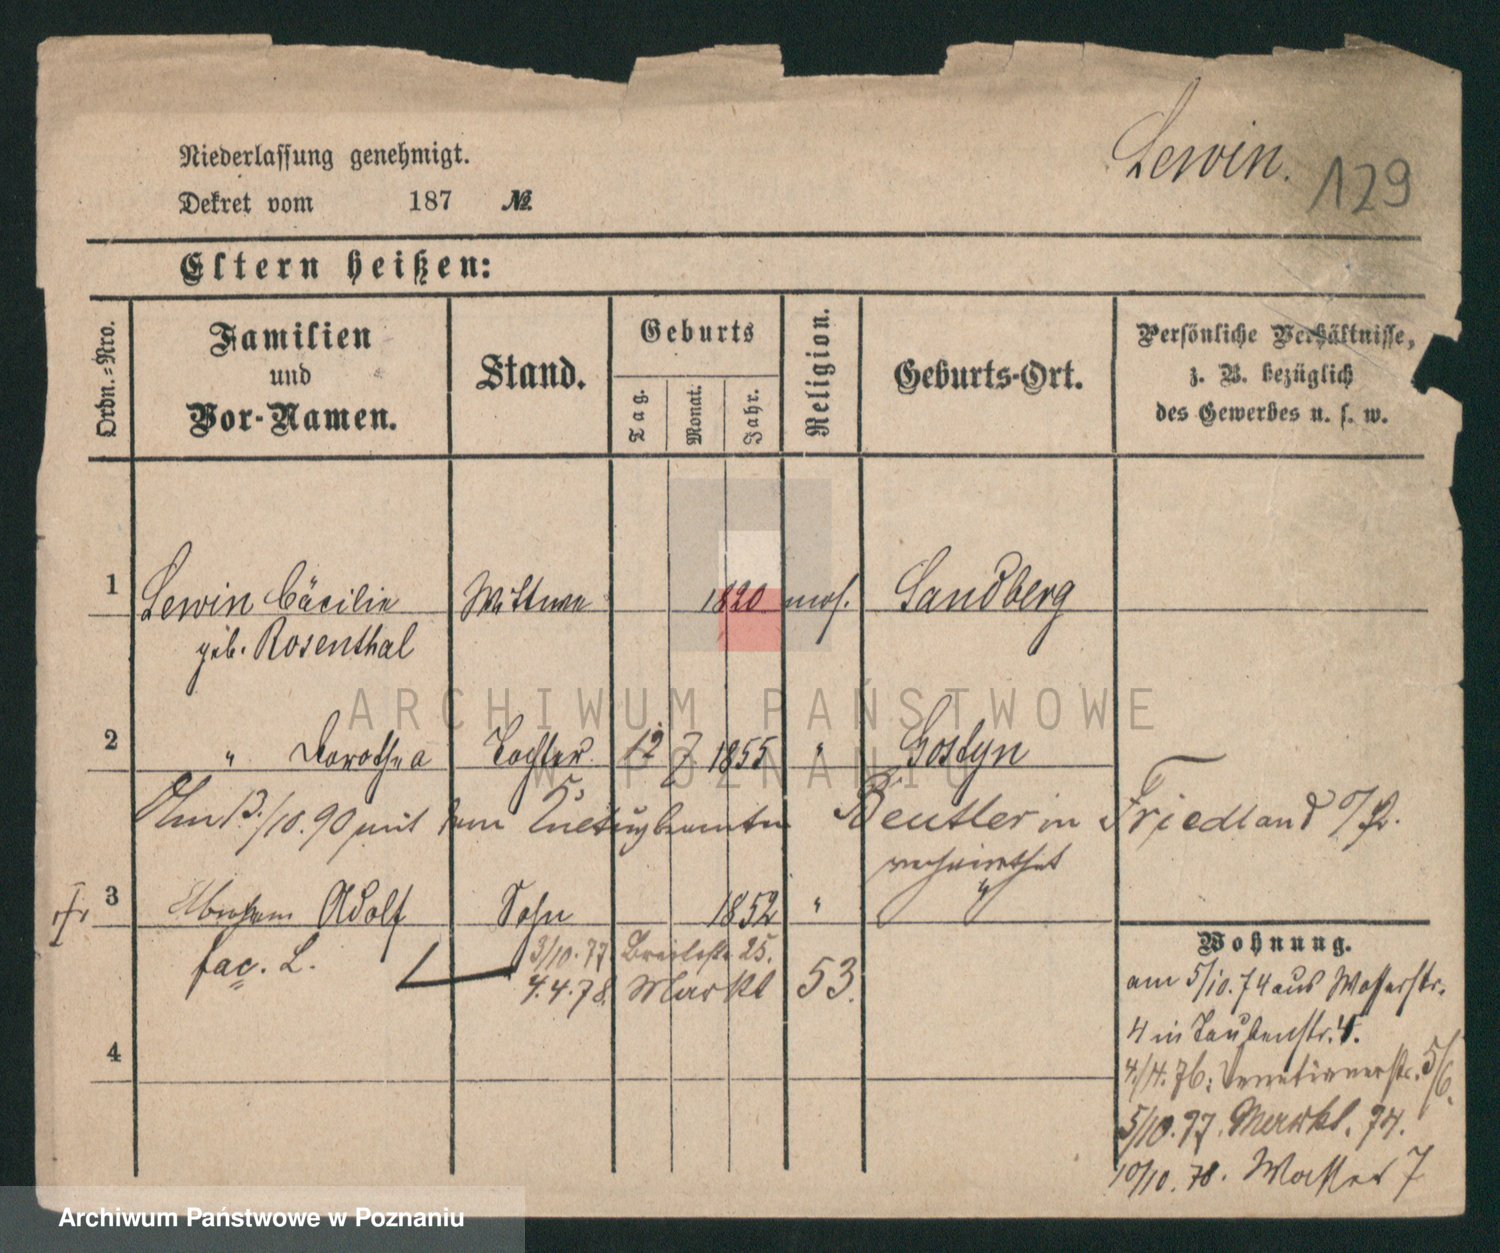 Lewin. 129
Niederlassung genehmigt.
Dekret vom 187 №
Eltern heißen:
Ordn.-Nro.
Familien
und
Vor-Namen.
Stand.
Geburts
Tag.
Monat.
Jahr.
Religion.
Geburts-Ort.
Persönliche Verhältnisse,
z. B. bezüglich
des Gewerbes u. s. w.
1 Lewin Cäcilie Wittwe 1820 mos. Sandberg
geb. Rosenthal
ARCHIWUM PAŃSTWOWE
W POZNANIU
2 " Dorothea Tochter 12 7 1855 " Gostyn
Am 13./10.90 mit dem Beutler in Friedland O/S.
verheirathet
3 Abraham Adolf Sohn 1852 " "
fac. L. 3/10.77 Breitestr 25.
4.4.78. Markt 53.
Wohnung.
am 5/10.74 aus Wasserstr.
4 in Taubenstr. 4.
4./4.76: Venetianerstr. 5/6.
5/10.77. Markt. 74.
10/10.78. Wasser 7
4
Archiwum Państwowe w Poznaniu